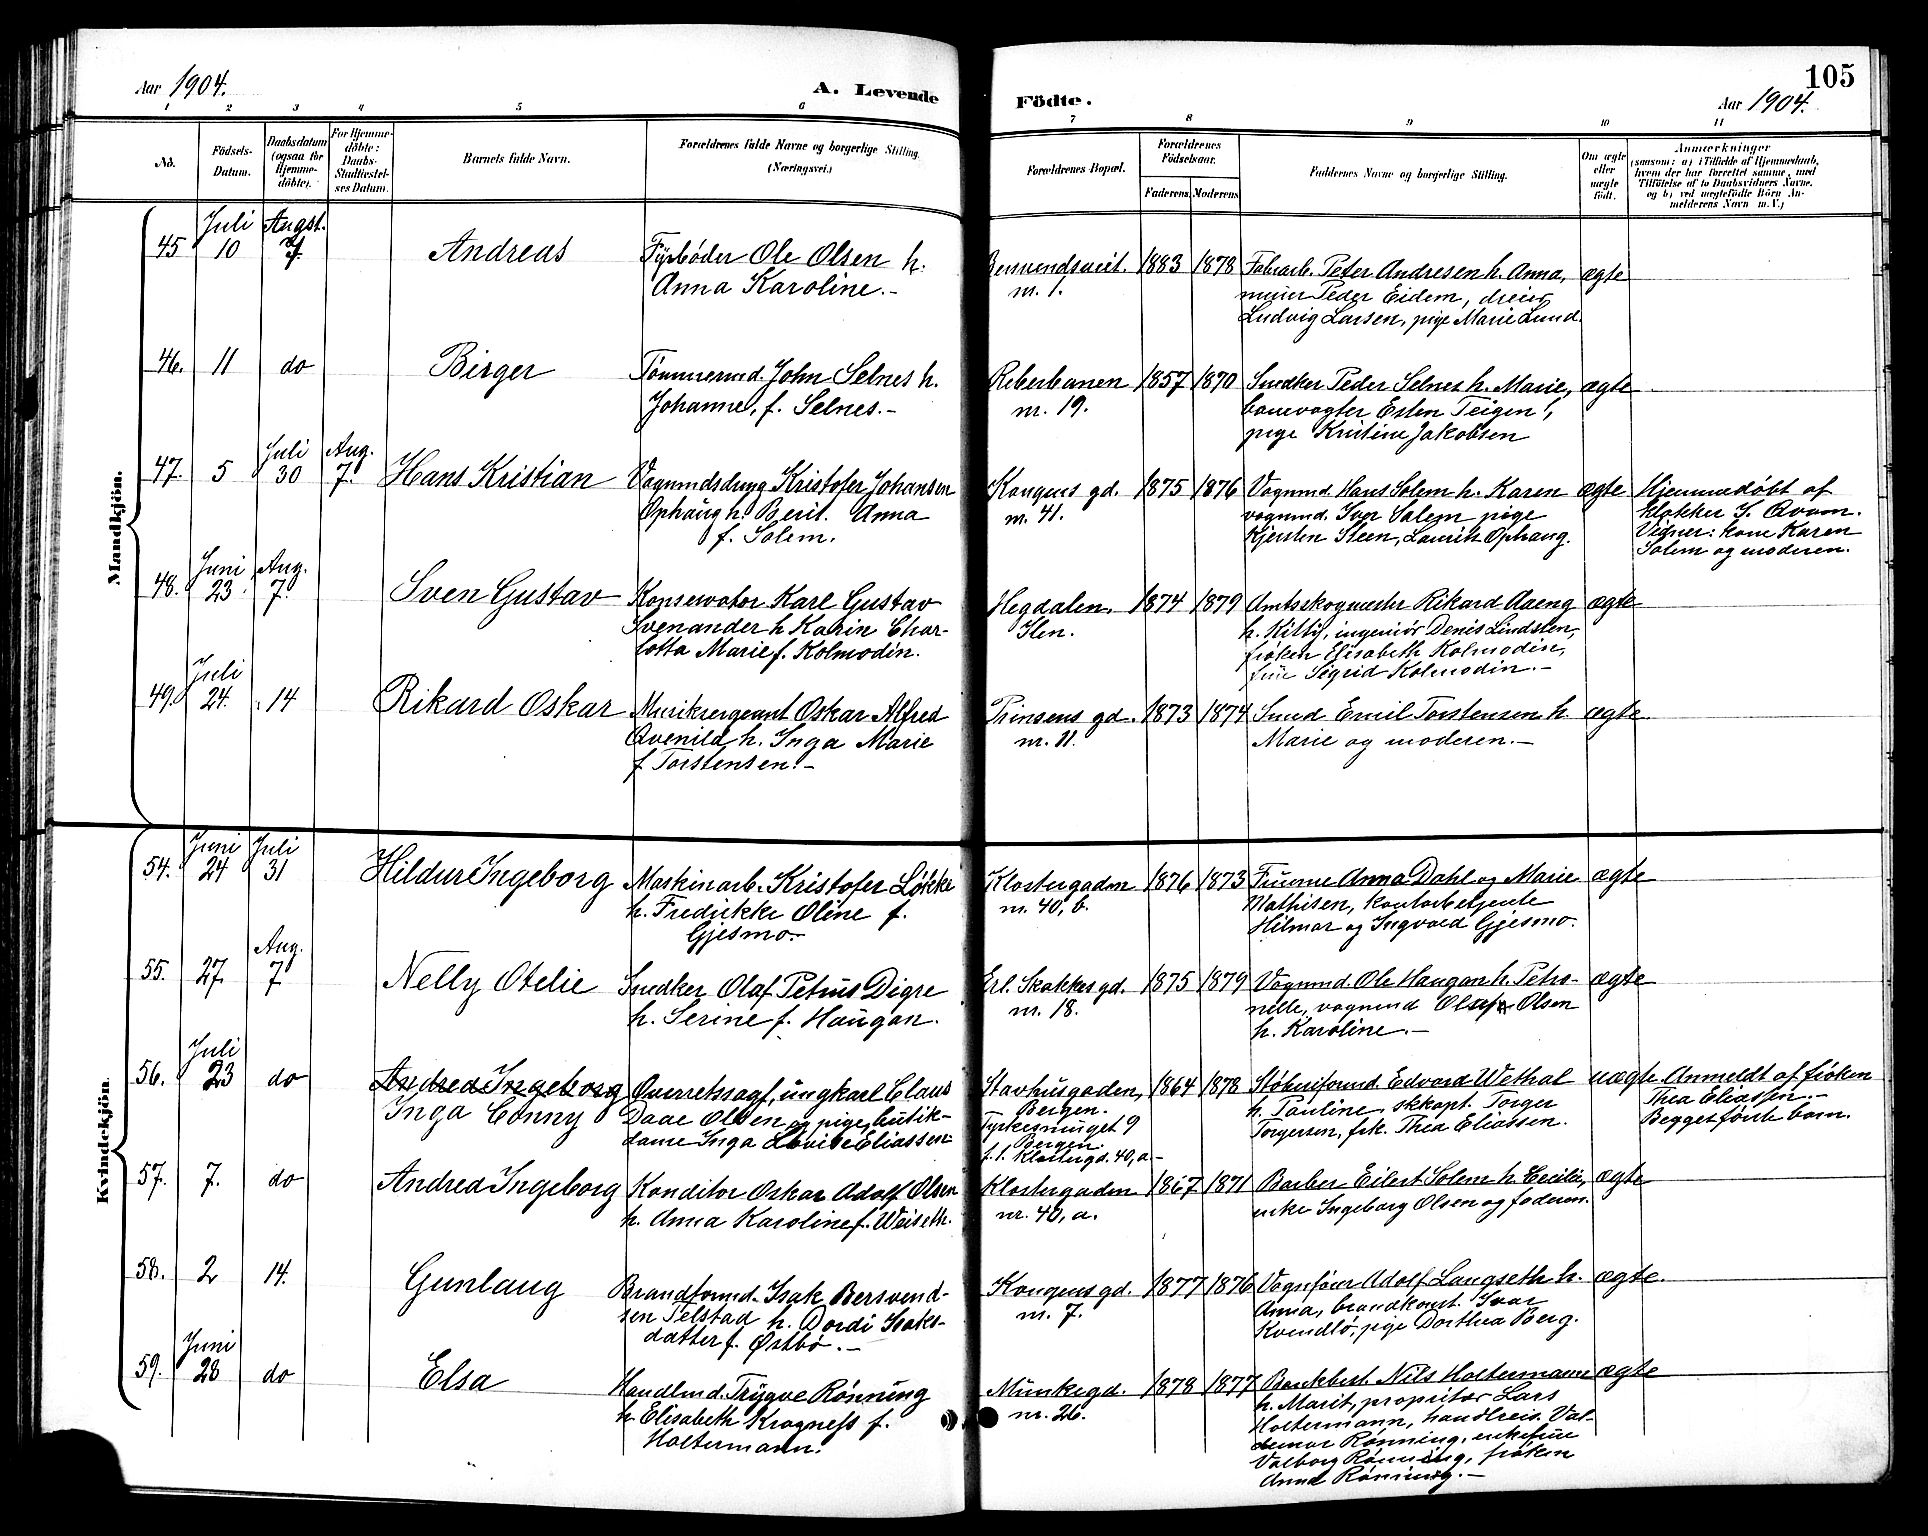 Aar 1904.
A. Levende
Födte.
105
Aar 1904.
1 2 3 4 5 6 7 8 9 10 11
No.
Födsels-Datum.
Daabsdatum (ogsaa for Hjemme-döbte).
For Hjemme-döbte: Daabs-Stadfæstel-ses Datum.
Barnets fulde Navn.
Forældrenes fulde Navne og borgerlige Stilling. (Næringsvei.)
Forældrenes Bopæl.
Forældrenes Födselsaar.
Faderens. Moderens.
Faddernes Navne og borgerlige Stilling.
Om ægte eller uægte födt.
Anmærkninger
(saasom: a) i Tilfælde af Hjemmedaab, hvem der har forrettet samme, med Tilföielse af to Daabsvidners Navne, og b) ved uægtefödte Börn An-melderens Navn m. V.)
Mandkjön.
45 Juli 10 Augst. 7. Andreas
Fyrbøder Ole Olsen h.
Anna Karoline.-
nr. 1.
1883 1878
Fabrarb. Peter Andresen h. Anna,
murer Peder Eidem, dreier
Ludvig Larsen, pige Marie Lund.
ægte
46. 11 do Birger
Tømmermd. John Selnes h.
Johanne, f. Selnes.-
Reberbanen
nr. 19.
1857 1870
Snedker Peder Selnes h. Marie,
banevogter Esten Teigen,
pige Kristine Jakobsen
ægte
47. 5 Juli 30 Aug. 7. Hans Kristian
Vognmdsdreng Kristofer Johansen
Ophaug h. Berit Anna
f. Solem.
Kongens gd.
nr. 41.
1875 1876
Vognmd. Hans Solem h. Karen
vognmd. Iver Solem pige
Kjersten Steen, Laurits Ophaug.
ægte
Hjemmedøbt af
klokker S. Kvam.
Vidner: kone Karen
Solem og moderen.
48. Juni 23 Aug. 7. Sven Gustav
Konservator Karl Gustav
Svenander h Karin Char-
lotta Marie f. Kolmodin.
Hegdalen,
Ilen.
1874 1879
Amtsskogmester Rikard Aaeng
h. Kitty, ingeniør Denis Lindsten,
frøken Elisabeth Kolmodin,
frue Sigrid Kolmodin.-
ægte
49. Juli 24. 14 Rikard Oskar
Musiksergeant Oskar Alfred
Qvenild h. Inga Marie
f Torstensen.-
Prinsens gd.
nr. 11.
1873 1874
Smed Emil Torstensen h
Marie og moderen.-
ægte
Kvindekjön.
54. Juni 24 Juli 31 Hildur Ingeborg
Maskinarb. Kristofer Løkke
h. Fredrikke Oline f.
Gjesmo.
Klostergaden
nr. 40, b.
1876 1873
Fruerne Anna Dahl og Marie
Mathisen, kontorbetjente
Hilmar og Ingvald Gjesmo.
ægte
55. 27. Aug. 7 Nelly Otelie
Snedker Olaf Petrus Digre
h. Serine f. Haugan.
Erl. Skakkes gd.
nr. 18.
1875 1879
Vognmd. Ole Haugan h. Petro-
nelle, vognmd Oluf Olsen
h. Karoline.-
ægte
56. Juli 23 do Andrea Ingeborg
Inga Conny
Overretssagf., ungkarl Claus
Daae Olsen og pige, butik-
dame Inga Lovise Eliassen
Stavhusgaden,
Bergen.
Tyskesmuget 9
Bergen.
f. t. Klostergd. 40, a.-
1864 1878
Støberiformd. Edvard Wethal
h. Pauline, skkapt. Torger
Torgersen, frk. Thea Eliassen.
uægte
Anmeldt af frøken
Thea Eliassen.-
Begges første barn.
57. 7. do Andrea Ingeborg
Konditor Oskar Adolf Olsen
h. Anna Karoline f. Weiseth.
Klostergaden
nr. 40, a.
1867 1871
Barber Eilert Solem h Cecilie,
enke Ingeborg Olsen og faderen.
ægte
58. 2 14. Gunlaug
Brandformd. Isak Bersvend-
sen Telstad h. Dordi Isaks-
datter f. Østbø.-
Kongens gd.
nr. 7.
1877 1876
Vognfører Adolf Langseth h.
Anna, brandkonst. Ivar
Kvendlø, pige Dorthea Berg.
ægte.
59. Juni 28 do Elsa
Handlmd. Trygve Rønning
h Elisabeth Kragness f.
Holtermann.
Munkegd.
nr. 26.
1878 1877
Bankbest. Nils Holtermann
h. Marit, proprietær Lars
Holtermann, handlreis. Val-
demar Rønning, enkefrue
Valborg Rønning, frøken
Anna Rønning.-
ægte